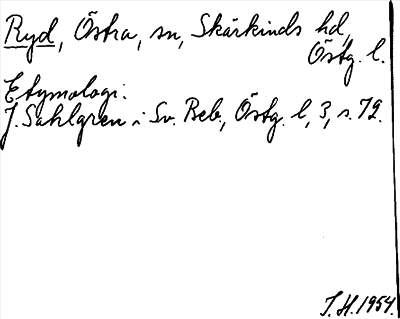 Ryd, Östra, sn, Skärkinds hd,
Östg. l.
Etymologi:
J. Sahlgren i Sv. Beb., Östg. l, 3, s. 72.
I.H. 1954.